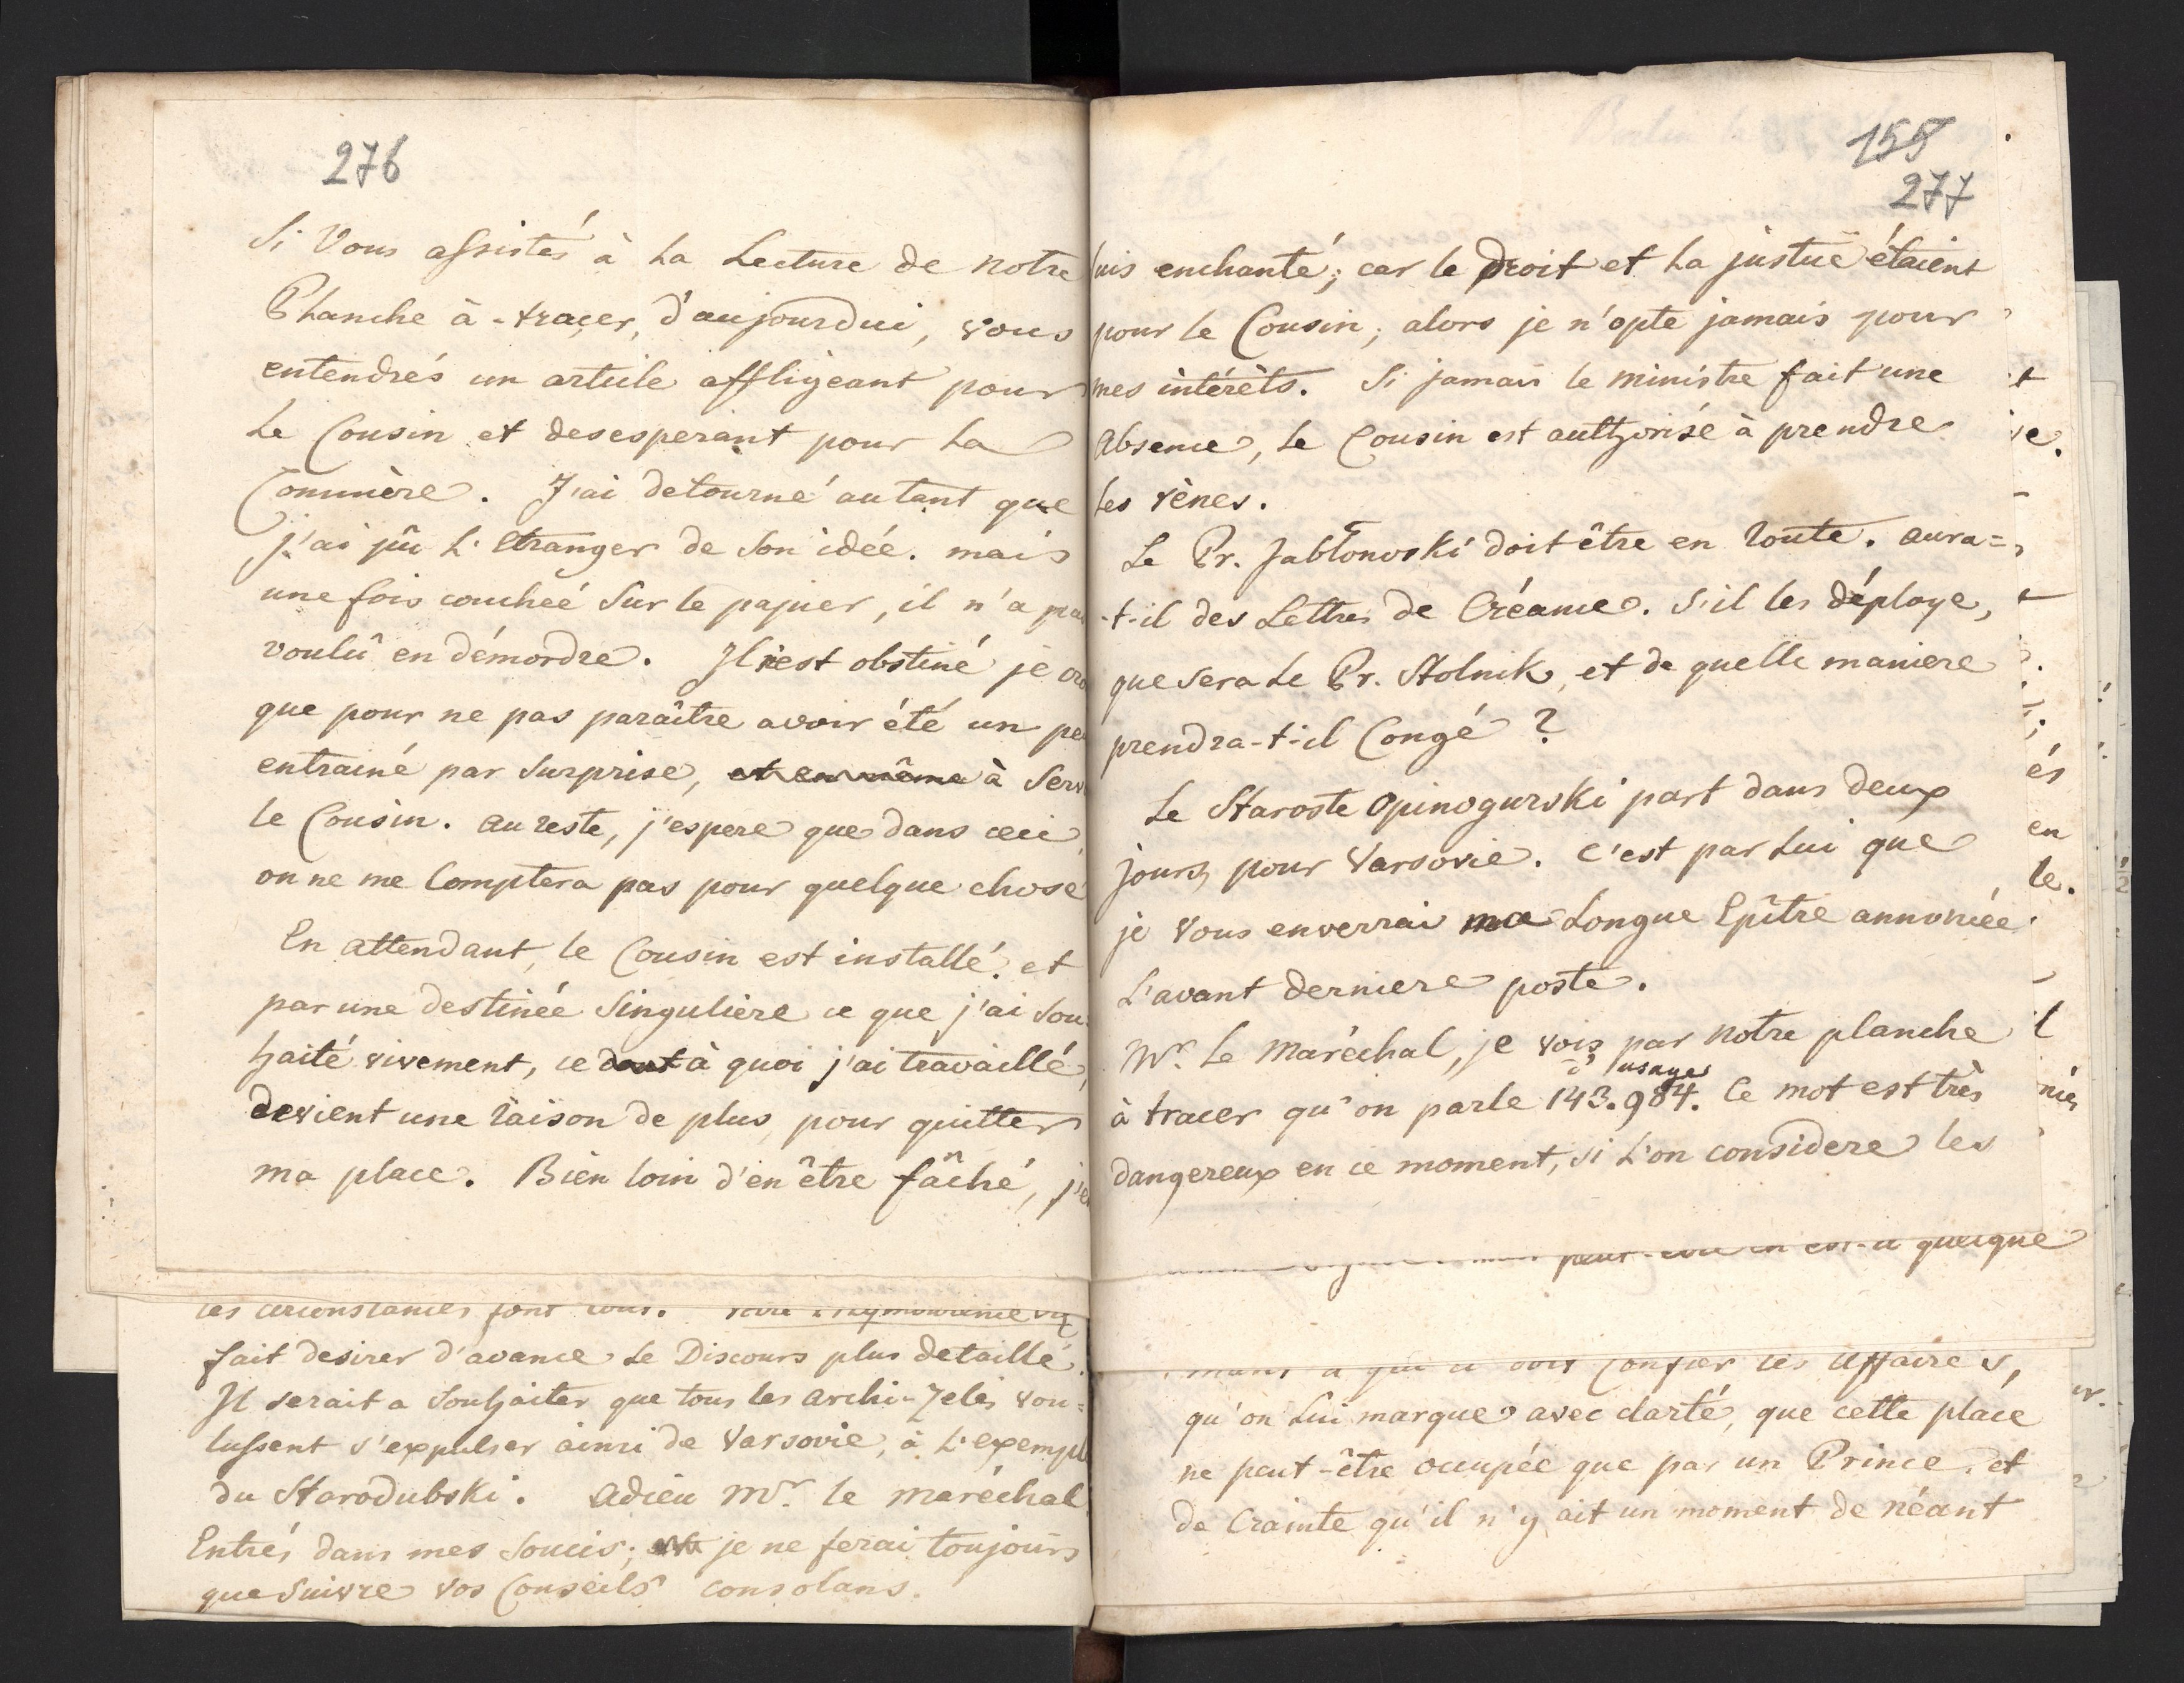 276
Si Vous assistés à la Lecture de notre
Planche à-traçer, d'aujourdui, vous
entendrés un article affligeant pour
le Cousin et desesperant pour la
Commère. J'ai detourné autant que
j'ai pû L'Etranger de Son idée. mais
une fois couchée Sur le papier, il n'a pas
voulû en démordre. Il s'est obstiné je
que pour ne pas paraître avoir été un
entrainé par Surprise, et en même à
le Cousin. au reste, j'espere que dans ceci,
on ne me Comptera pas pour quelque chose
En attendant, le Cousin est installé. et
par une destinée Singuliere ce que j'ai Sou-
haité vivement, ce dont à quoi j'ai travaillé,
devient une raison de plus, pour quitter
ma place. Bien loin d'en être fâché,
les circonstances font tout.
fait desirer d'avance le Discours plus detaillé.
Il serait a Souhaiter que tous les archi-Zelés vou=
lussent s'expulser ainsi de Varsovie, à L'exemple
du Starodubski. Adieu Mr. le Maréchal
Entrés dans mes Soucis; je ne ferai toujours
que Suivre vos Conseils consolans.
155
277
suis enchanté; car le Droit et la justice étaient
pour le Cousin; alors je n'opte jamais pour
mes intérêts. Si jamais le ministre fait une
Absence, le Cousin est authorisé à prendre
les rênes.
Le Pr. Jabłonowski doit être en Route. aura=
-t-il des Lettres de Créance. S'il les déploye,
que sera le Pr. Stolnik, et de quelle maniere
prendra-t-il Congé ?
Le Staroste Opinogurski part dans deux
jours pour Varsovie. C'est par Lui que
je Vous enverrai ma Longue Epître annoncée
L'avant derniere poste.
Mr. Le Maréchal, je vois par notre planche
à tracer qu'on parle 143.984. Ce mot est très
dangereux en ce moment, si L'on considere les
peut-être en est-il quelque
à qui il doit Confier les Affaires,
qu'on Lui marque avec clarté, que cette place
ne peut-être occupée que par un Prince. et
de Crainte qu'il n'y ait un moment de néant